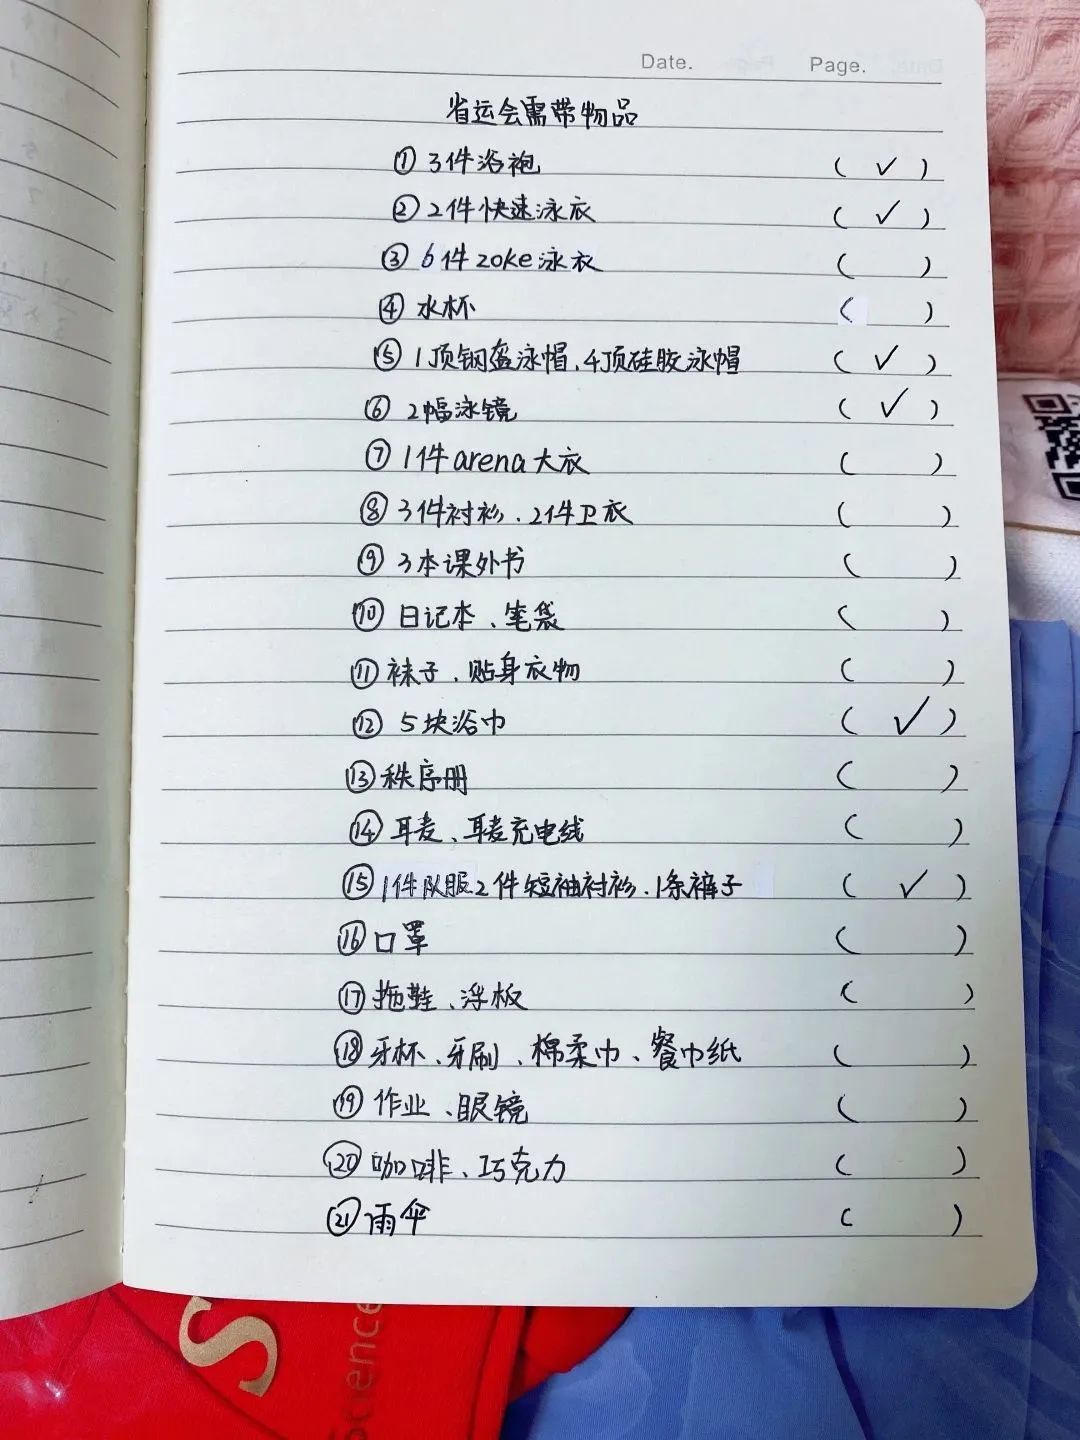 Date. Page.
省运会需带物品
① 3件浴袍 ( ✓ )
② 2件快速泳衣 ( ✓ )
③ 6件zoke泳衣 ( )
④ 水杯 ( )
⑤ 1顶钢盔泳帽、4顶硅胶泳帽 ( ✓ )
⑥ 2幅泳镜 ( ✓ )
⑦ 1件arena大衣 ( )
⑧ 3件衬衫、2件卫衣 ( )
⑨ 3本课外书 ( )
⑩ 日记本、笔袋 ( )
⑪ 袜子、贴身衣物 ( )
⑫ 5块浴巾 ( ✓ )
⑬ 秩序册 ( )
⑭ 耳麦、耳麦充电线 ( )
⑮ 1件队服2件短袖衬衫、1条裤子 ( ✓ )
⑯ 口罩 ( )
⑰ 拖鞋、浮板 ( )
⑱ 牙杯、牙刷、棉柔巾、餐巾纸 ( )
⑲ 作业、眼镜 ( )
⑳ 咖啡、巧克力 ( )
㉑ 雨伞 ( )
S